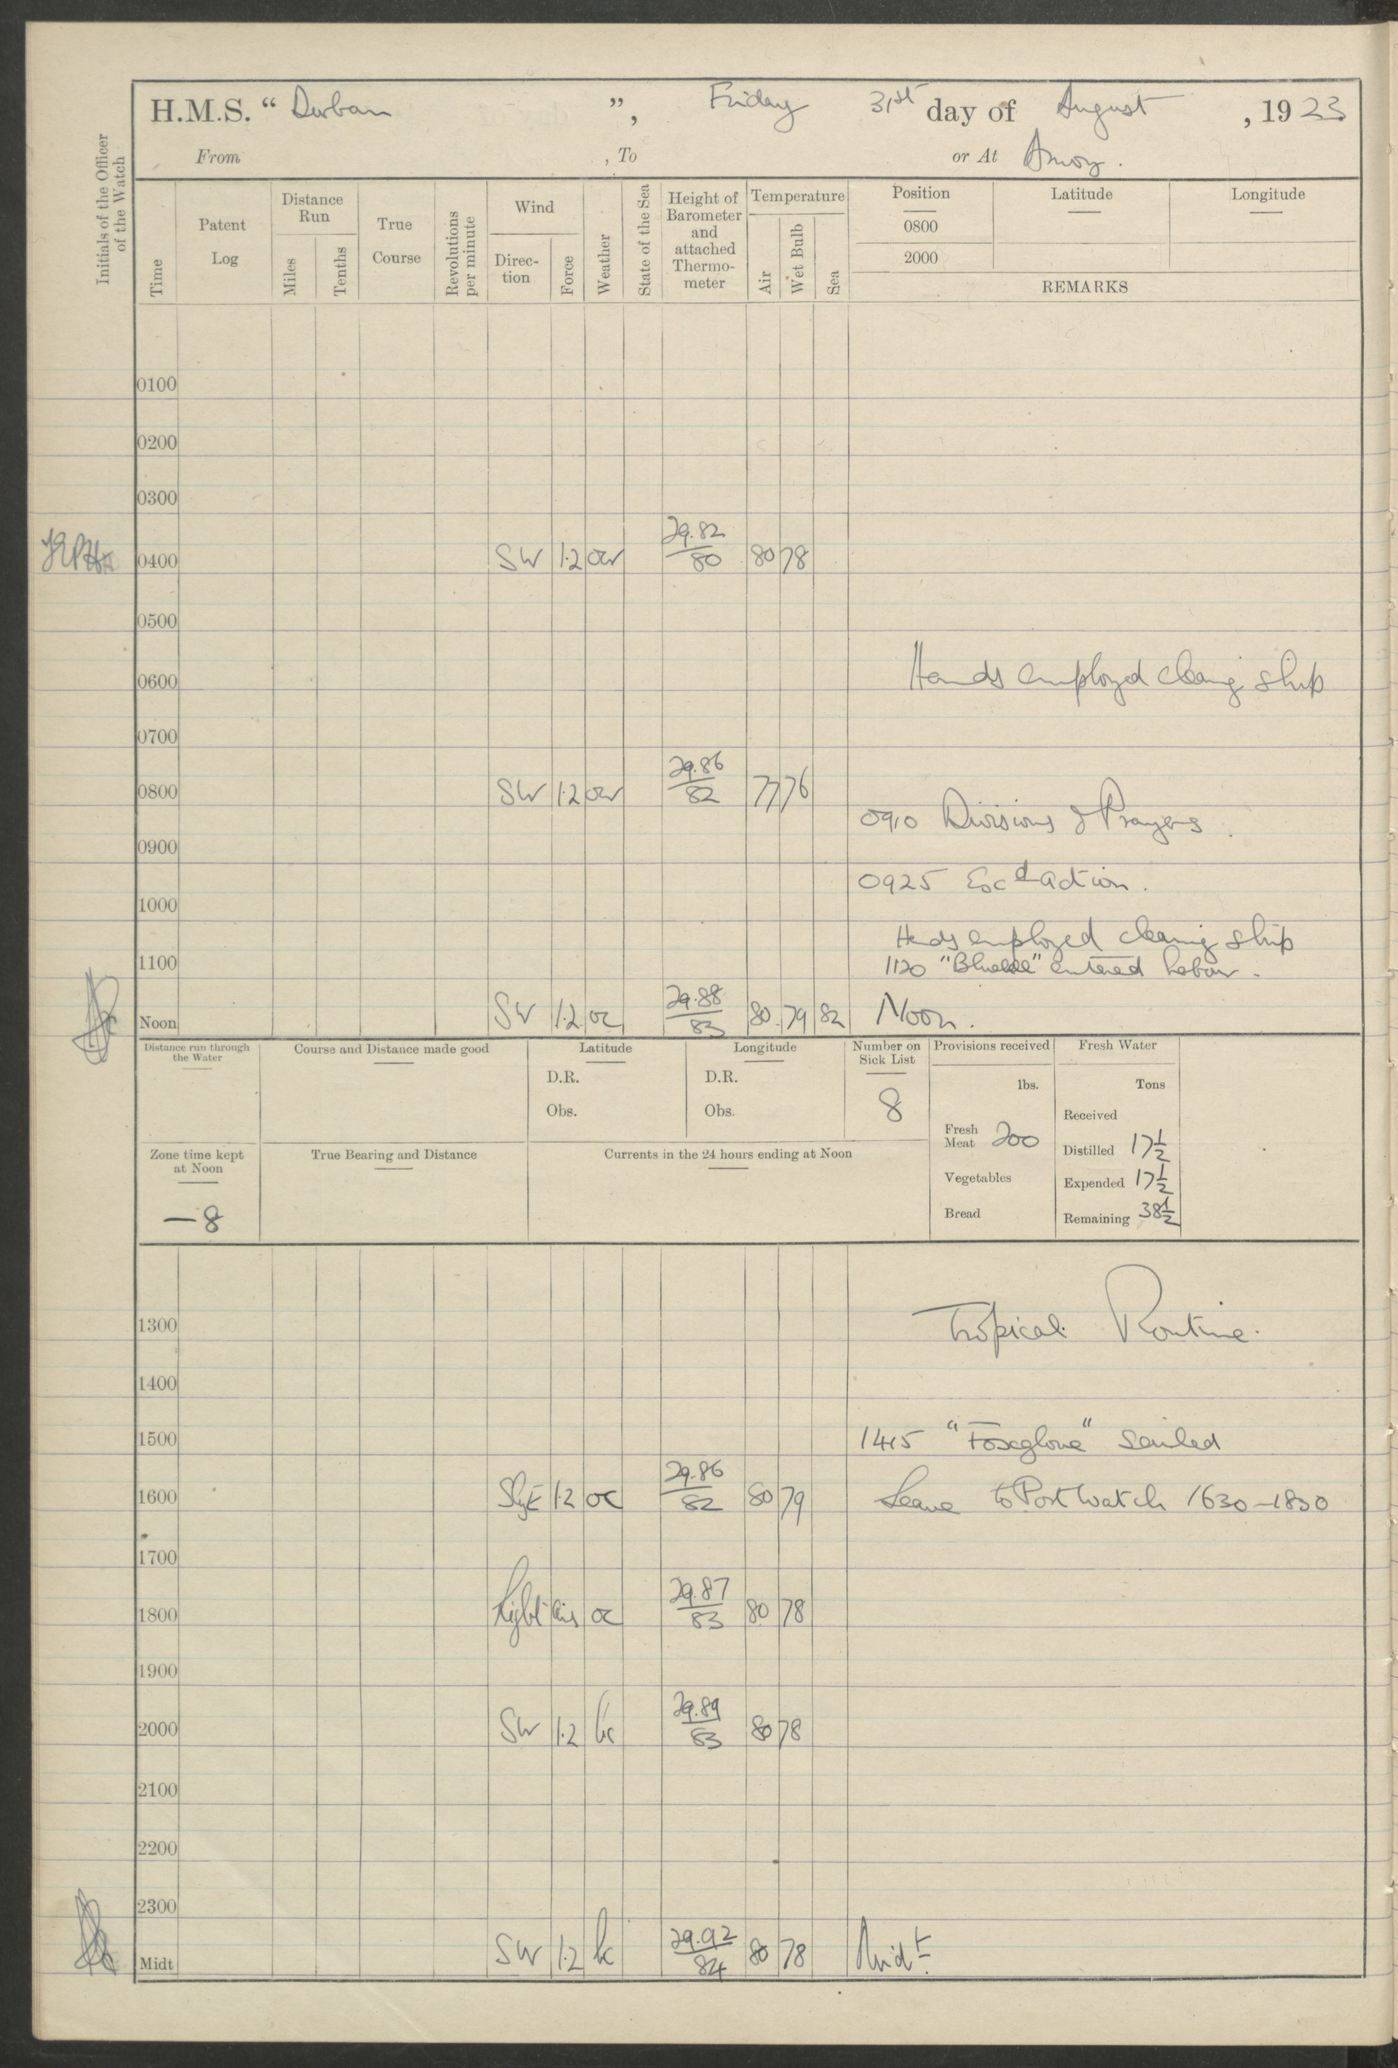 H.M.S. “ Durban ”, Friday 31st day of August, 1923
From , To or At Amoy.
Initials of the Officer of the Watch
Time
Patent Log
Distance Run
Miles
Tenths
True Course
Revolutions per minute
Wind
Direc-tion
Force
Weather
State of the Sea
Height of Barometer and attached Thermo-meter
Temperature
Air
Wet Bulb
Sea
Position Latitude Longitude
0800
2000
REMARKS
0100
0200
0300
0400 SW 1.2 29.82/80 80 78
0500
0600 Hands employed cleaning ship
0700
0800 SW 1.2 29.86/82 77 76
0910 Divisions & Prayers.
0900
0925 Action.
1000
Hands employed cleaning ship
1100 1120 entered
Noon SW 1.2 oc 29.88/83 80 79 82 Noon.
Distance run through the Water
Course and Distance made good
Latitude
D.R.
Obs.
Longitude
D.R.
Obs.
Number on Sick List
8
Provisions received
lbs.
Fresh Meat 200
Vegetables
Bread
Fresh Water
Tons
Received
Distilled 17½
Expended 17½
Remaining 38½
Zone time kept at Noon
−8
True Bearing and Distance
Currents in the 24 hours ending at Noon
1300 Tropical Routine.
1400
1500 1415 "Foxglove" sailed
1600 1.2 oc 29.86/82 80 79 Leave to Port Watch 1630–1830
1700
1800 Light airs oc 29.87/83 80 78
1900
2000 SW 1.2 29.89/83 80 78
2100
2200
2300
Midt SW 1.2 29.92/84 80 78 Midt.